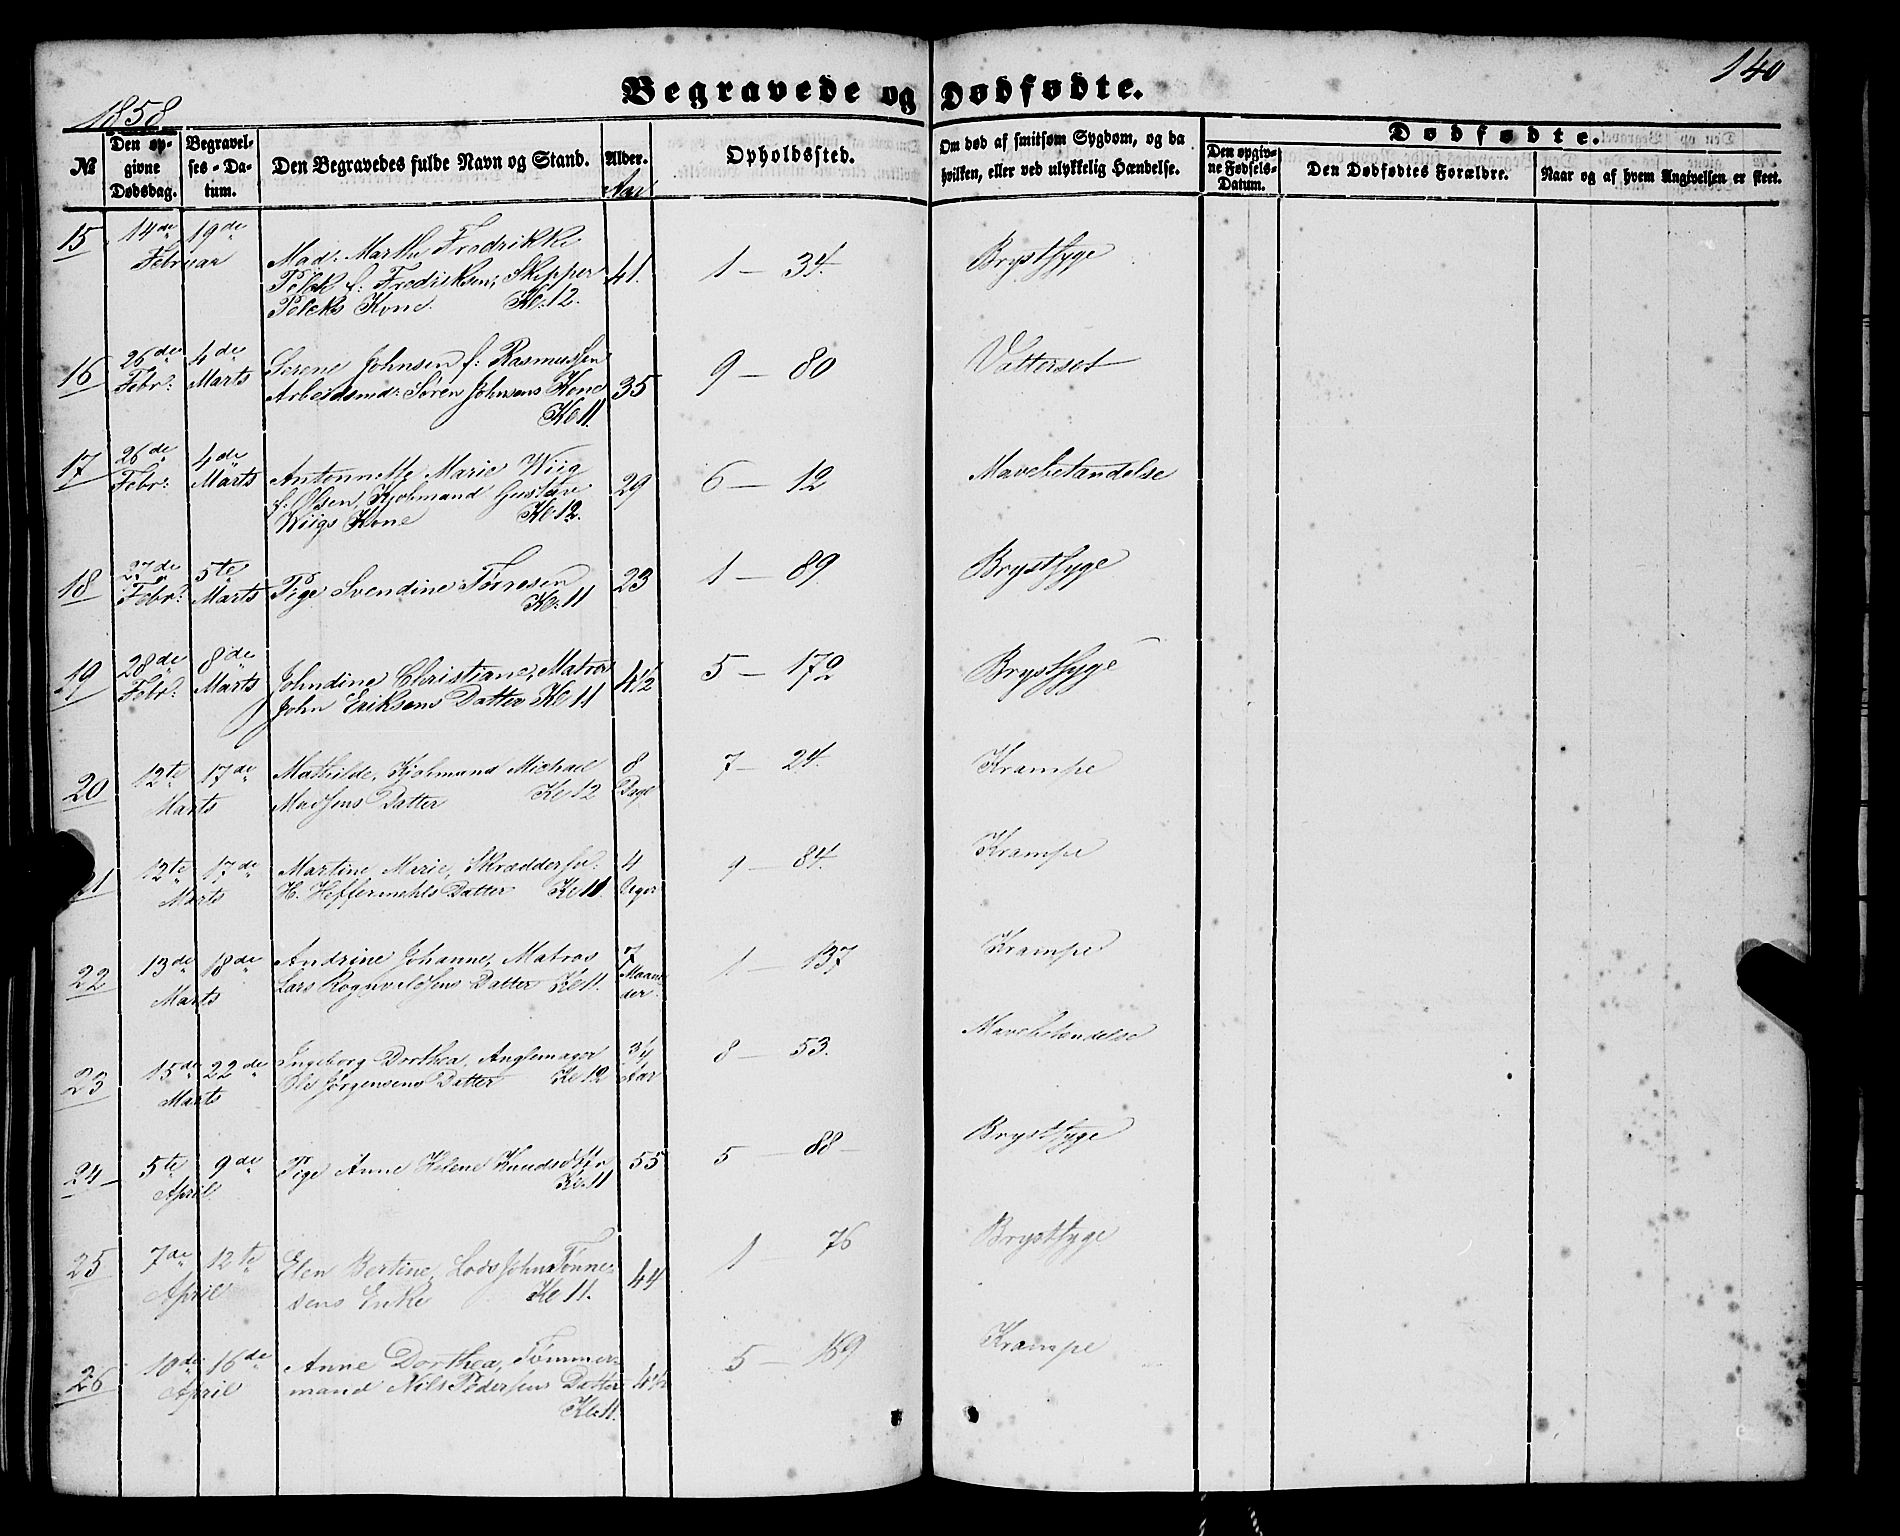 140
Begravede og Dødfødte.
1858
No Den opgivne Dødsdag. Begravelses-Datum. Den Begravedes fulde Navn og Stand. Alder. Opholdssted. Om død af smitsom Sygdom, og da hvilken, eller ved ulykkelig Hændelse. Dødfødte. Den opgivne Fødsels-Datum. Den Dødfødtes Forældre. Naar og af hvem Angivelsen er skeet.
Aar
15 14de 19de Februar Mad: Marthe Fredrikke
Pelck f: Fredriksen, Skipper 41. 1 – 34. Brystsyge
Pelcks Kone. Kl. 12.
16 26de Febr: 4de Marts Serene Johnsen f: Rasmussen
Arbeidsmd: Søren Johnsens Kone 35 9 – 80 Vattersot
Kl 11.
17 26de Febr: 4de Marts Antonnette Marie Wiig
f: Olsen, Kjøbmand Gustav 29 6 – 12 Mavebetændelse
Wiigs Kone Kl 12.
18 27de Febr: 5te Marts Pige Svendine Tørresen 23 1 – 89. Brystsyge
Kl: 11
19 28de Febr: 8de Marts Johndine Christiane, Matros
John Eriksens Datter Kl 11 5 – 172 Brystsyge
20 12te 17de Marts Mathilde, Kjøbmand Michael 8 Dage 7 – 24. Krampe
Madsens Datter Kl 12
21 12te 17de Marts Martine Marie, Skrædders 4 Uger 9 – 84. Krampe
H. Heffermehls Datter Kl 11
22 13de 18de Marts Andrine Johanne, Matros 7 Maaneder 1 – 137 Krampe
Lars Rognvaldsens Datter Kl 11.
23 15de 22de Marts Ingeborg Dorthea, Anglemager 3/4 Aar 8 – 53. Mavebetændelse
Ole Jørgensens Datter Kl 12
24 5te 9de April Pige Anne Helene Knudsdttr 55 5 – 88 – Brystsyge
Kl. 11
25 7de 12te April Elen Bertine, Lods Johns Tønne- 44 1 – 76 Brystsyge
sens Enke Kl 11.
26 10de 16de April Anne Dorthea, Tømmer-
mand Nils Pedersens Datter 4 1/2 5 – 189 Krampe
Kl: 11.